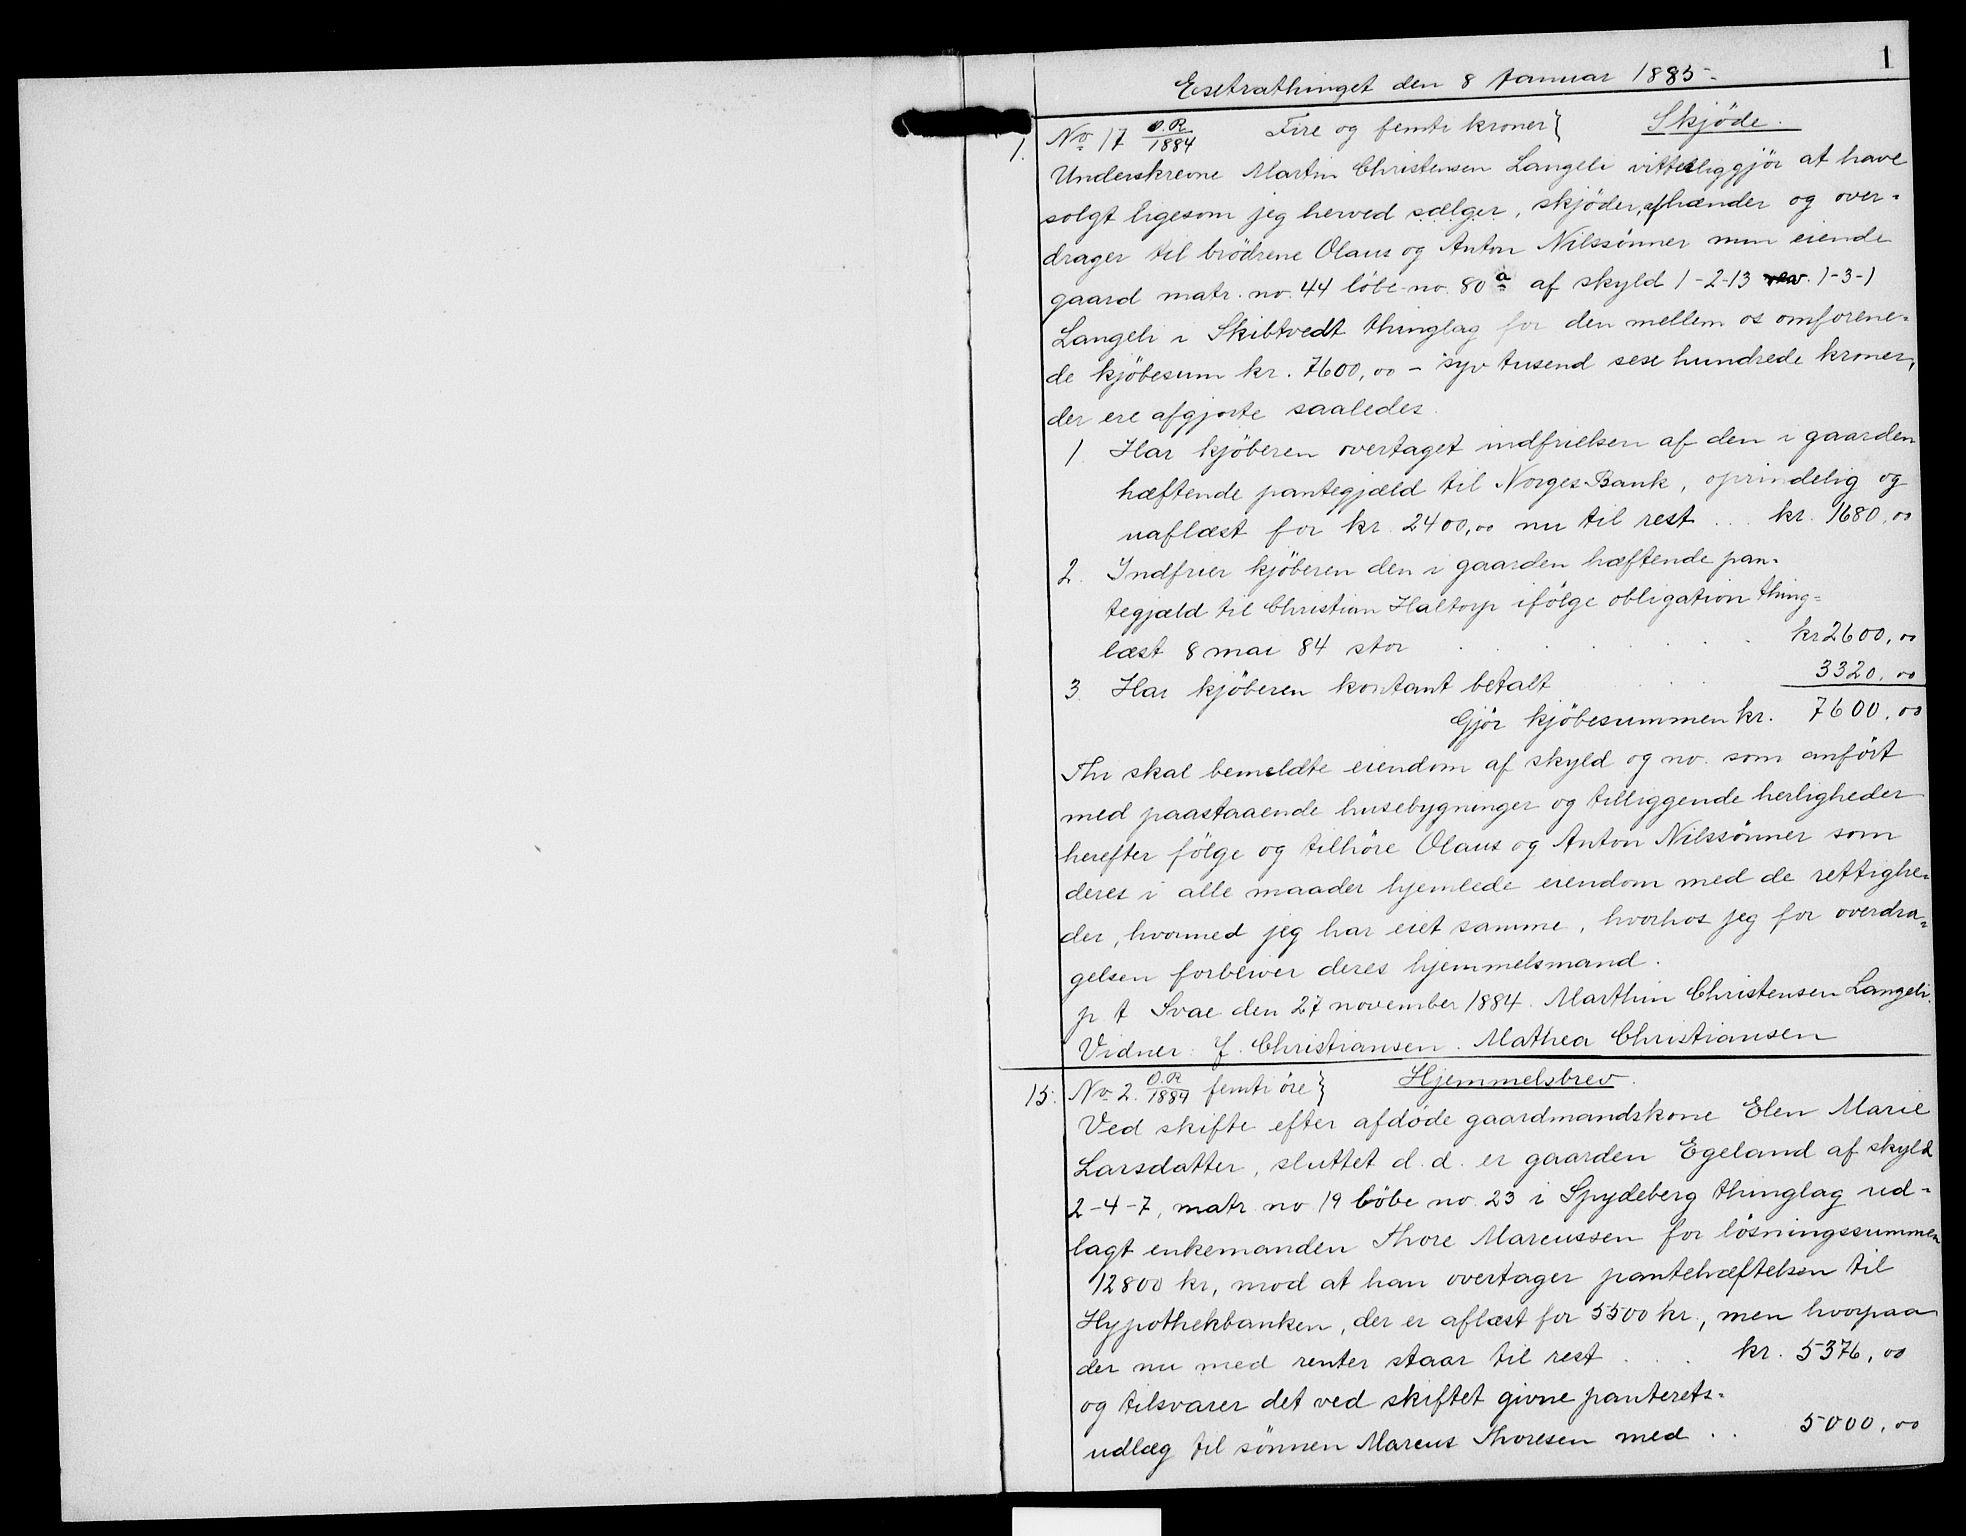 1
Esxtrathinget den 8 Januar 1885.
No 17 O.R/1884 Fire og femti kroner} Skjöde.
1. Underskrevne Martin Christensen Langeli vitterliggjör at have
solgt ligesom jeg herved sælger, skjöder, afhænder og over-
drager til brödrene Olaus og Anton Nilssönner min eiende
gaard matr. no. 44 löbe-no. 80 a af skyld 1-2-13 rev. 1-3-1
Langeli i Skibtvedt thinglag for den mellem os omforene-
de kjöbesum kr. 7600,00 - syv tusend sesx hundrede kroner,
der ere afgjorte saaledes.
1. Har kjöberen overtaget indfrielsen af den i gaarden
hæftende pantegjæld til Norges Bank, oprindelig og
uaflæst for kr. 2400,00 nu til rest ... kr. 1680,00
2. Indfrier kjöberen den i gaarden hæftende pan-
tegjæld til Christian Haltorp ifölge obligation thing-
læst 8 mai 84 stor . . . . . kr 2600,00
3. Har kjöberen kontant betalt . . 3320,00
Gjör kjöbesummen kr. 7600,00
Thi skal bemeldte eiendom af skyld og no. som anfört
med paastaaende husebygninger og tilliggende herligheder
herefter fölge og tilhöre Olaus og Anton Nilssönner som
deres i alle maader hjemlede eiendom med de rettighe-
der, hvormed jeg har eiet samme, hvorhos jeg for overdra-
gelsen forbliver deres hjemmelsmand.
p t Svae den 27 november 1884. Marthin Christensen Langeli.
Vidner: J. Christiansen. Mathea Christiansen
15. No 2. O.R/1884 femti öre} Hjemmelsbrev.
Ved skifte efter afdöde gaardmandskone Elen Marie
Larsdatter, sluttet d. d. er gaarden Egeland af skyld
2-4-7, matr. no 19 löbe no. 23 i Spydeberg thinglag ud-
lagt enkemanden Thore Marcussen for lösningssummen
12800 kr, mod at han overtager pantehæftelsen til
Hypothekbanken, der er aflæst for 5500 kr., men hvorpaa
der nu med renter staar til rest . . . kr. 5376,00
og tilsvarer det ved skiftet givne panterets-
udlæg til sönnen Marcus Thoresen med .. 5000,00